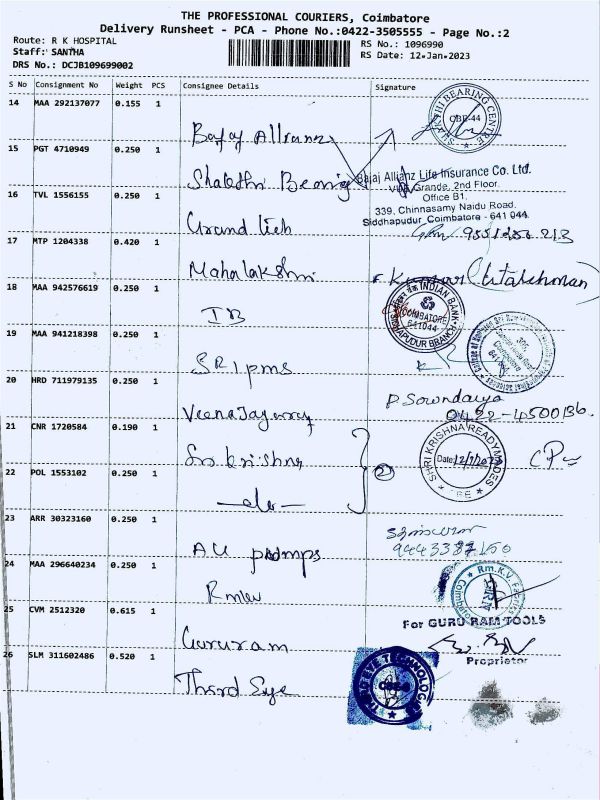 THE PROFESSIONAL COURIERS, Coimbatore
Delivery Runsheet - PCA - Phone No.:0422-3505555 - Page No.:2
Route: R K HOSPITAL
Staff: SANTHA
DRS No.: DCJB109699002
RS No.: 1096990
RS Date: 12-Jan-2023
S No Consignment No Weight PCS Consignee Details Signature
14 MAA 292137077 0.155 1
Bajaj Allianz
SHAKTHI BEARING CENTRE
CBE-44
15 PGT 4710949 0.250 1
Shakthi Bearing
Bajaj Allianz Life Insurance Co. Ltd.
Grande, 2nd Floor.
Office B1.
339, Chinnasamy Naidu Road.
Siddhapudur, Coimbatore - 641 044.
16 TVL 1556155 0.250 1
Grand
17 MTP 1204338 0.420 1
Mahalakshmi
18 MAA 942576619 0.250 1
IB
INDIAN BANK
COIMBATORE
641044
SIDHAPUDUR BRANCH
19 MAA 941218398 0.250 1
SRIPMS
20 HRD 711979135 0.250 1
Veena
P. Sowndarya
0422-4500136.
21 CNR 1720584 0.190 1
Sri Krishna
SHRI KRISHNA READYMADES
Date:
22 POL 1553102 0.250 1
-do-
2
23 ARR 30323160 0.250 1
AU pumps
24 MAA 296640234 0.250 1
Rmkv
Rm.K.V.
25 CVM 2512320 0.615 1
Gururam
For GURU RAM TOOLS
Proprietor
26 SLM 311602486 0.520 1
Third Eye
THIRD EYE TECHNOLOGIES